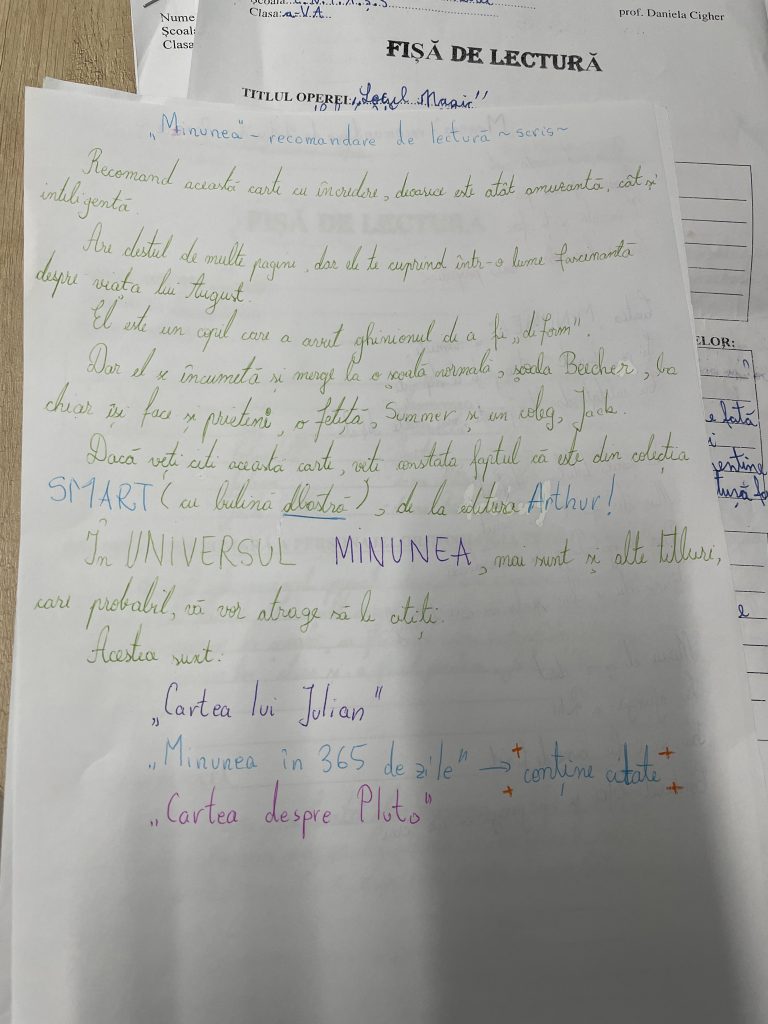 Nume
Școala
Clasa
Clasa: a-V.A
prof. Daniela Cigher
FIȘĂ DE LECTURĂ
TITLUL OPEREI: „Locul Magic”
„Minunea” - recomandare de lectură ~ scris ~
Recomand această carte cu încredere, deoarece este atât amuzantă, cât și
inteligentă.
Are destul de multe pagini, dar ele te cuprind într-o lume fascinantă
despre viața lui August.
El este un copil care a avut ghinionul de a fi „deform”.
Dar el se încumetă și merge la o școală normală, școala Beecher, ba
chiar își face și prieteni, o fetiță, Summer și un coleg, Jack.
Dacă veți citi această carte, veți constata faptul că este din colecția
SMART (cu bulină albastră), de la editura Arthur!
În UNIVERSUL MINUNEA, mai sunt și alte titluri,
care probabil, vă vor atrage să le citiți.
Acestea sunt:
„Cartea lui Julian”
„Minunea în 365 de zile” → conține citate
„Cartea despre Pluto”
ELOR:
e fată